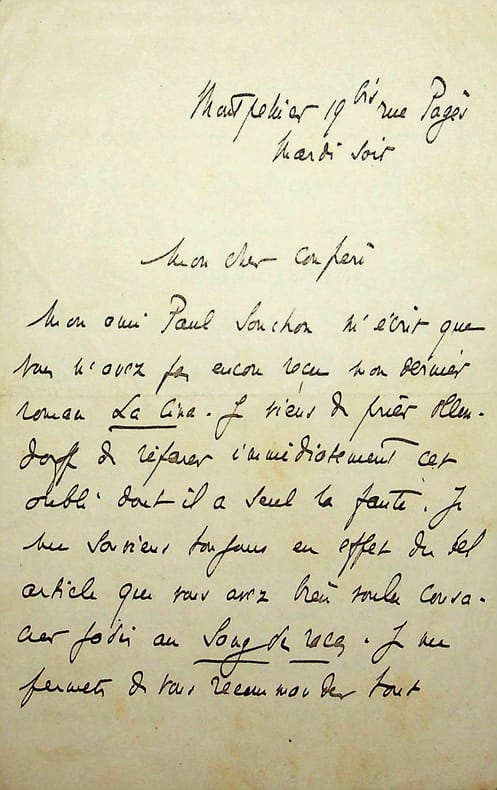 Montpellier 19 bis rue Pagès
Mardi soir
Mon cher Confrère
Mon ami Paul Souchon m'écrit que
vous n'avez pas encore reçu mon dernier
roman La Cina. Je viens de prier Ollen-
dorff de réparer immédiatement cet
oubli dont il a seul la faute. Je
me souviens toujours en effet du bel
article que vous avez bien voulu consa-
crer jadis au Sang des races. Je me
permets de vous recommander tout